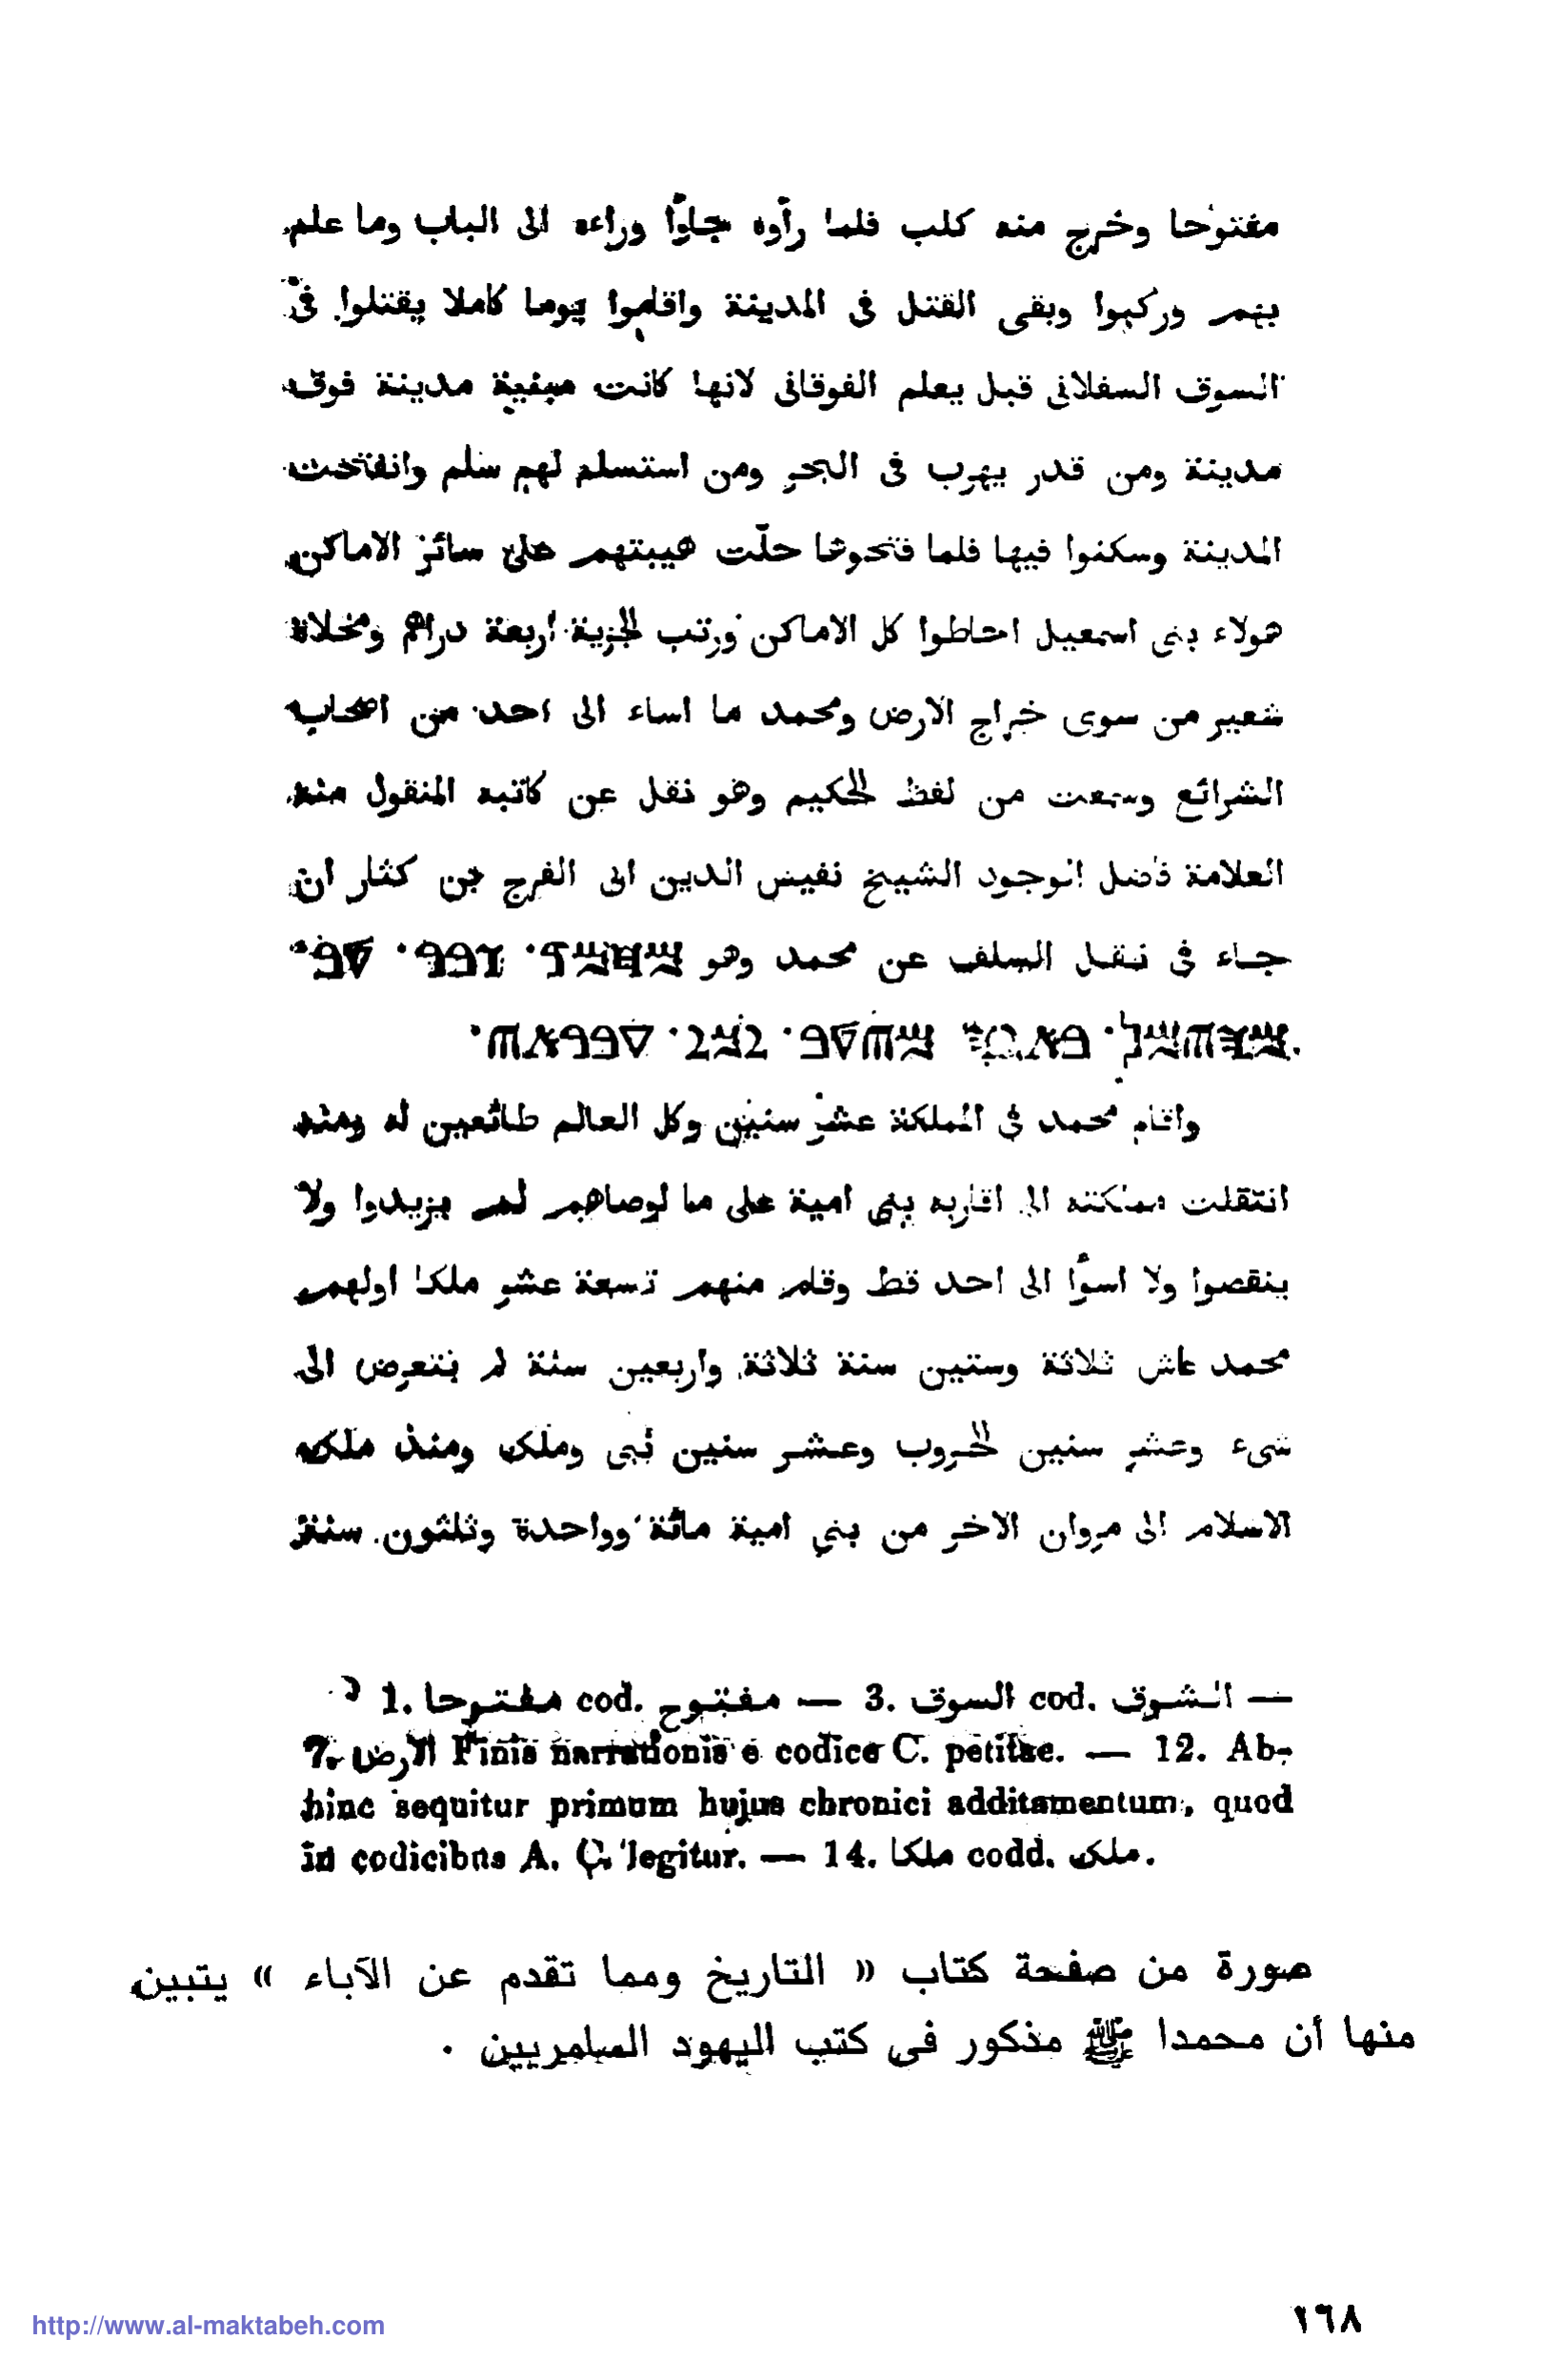 مفتوحا وخرج منه كلب فلما رأوه جاوًا وراءه الى الباب وما علم
بهم وركبوا وبقى القتل فى المدينة واقاموا يوما كاملا يقتلوا فى
السوق السفلانى قبل يعلم الفوقانى لانها كانت مبنية مدينة فوق
مدينة ومن قدر يهرب فى البحر ومن استسلم لهم سلم وانفتحت
المدينة وسكنوا فيها فلما فتحوها حلّت هيبتهم على سائر الاماكن
هولاء بنى اسمعيل احاطوا كل الاماكن ورتب الجزية اربعة دراهم ومخلاة
شعير من سوى خراج الارض ومحمد ما اساء الى احد من اصحاب
الشرائع وسمعت من لفظ الحكيم وهو نقل عن كاتبه المنقول منه
العلامة فاضل الوجود الشيخ نفيس الدين ابى الفرج بن كثار ان
جاء فى نقل السلف عن محمد وهو
واقام محمد فى المملكة عشر سنين وكل العالم طائعين له ومنه
انتقلت مملكته الى اقاربه بنى امية على ما اوصاهم لم يزيدوا ولا
ينقصوا ولا اسوًا الى احد قط وقام منهم تسعة عشر ملكا اولهم
محمد عاش ثلاثة وستين سنة ثلاثة واربعين سنة لم يتعرض الى
شىء وعشر سنين الحروب وعشر سنين نبى وملك ومنذ ملكه
الاسلام الى مروان الاخر من بنى امية مائة وواحدة وثلثون سنة
1. مفتوحا cod. مفتوح — 3. السوق cod. الشوق —
7. الارض Finis narrationis e codice C. petitae. — 12. Ab-
hinc sequitur primum hujus chronici additamentum, quod
in codicibus A. C. legitur. — 14. ملكا codd. ملك.
صورة من صفحة كتاب « التاريخ ومما تقدم عن الآباء » يتبين
منها أن محمدا ﷺ مذكور فى كتب اليهود السامريين .
http://www.al-maktabeh.com
١٦٨